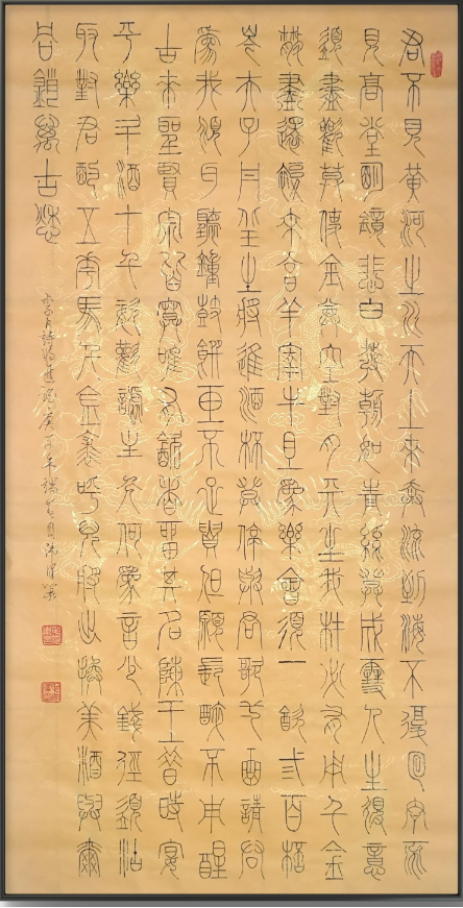 君不見黃河之水天上來奔流到海不復回君不
見高堂明鏡悲白髮朝如青絲莫成雪人生得意
須盡歡莫使金尊空對月天生我材必有用千金
散盡還復來烹羊宰牛且為樂會須一飲弎百桮
岑夫子丹丘生將進酒杯莫停與君歌一曲請君
為我傾耳聽鐘鼓饌玉不足貴但願長醉不用醒
古來聖賢寂皆寞唯有飲者留其名陳王昔時宴
平樂斗酒十千恣歡謔主人何為言少錢徑須沽
取對君酌五花馬千金裘呼兒將出換美酒與爾
同銷萬古愁
李白詩將進酒